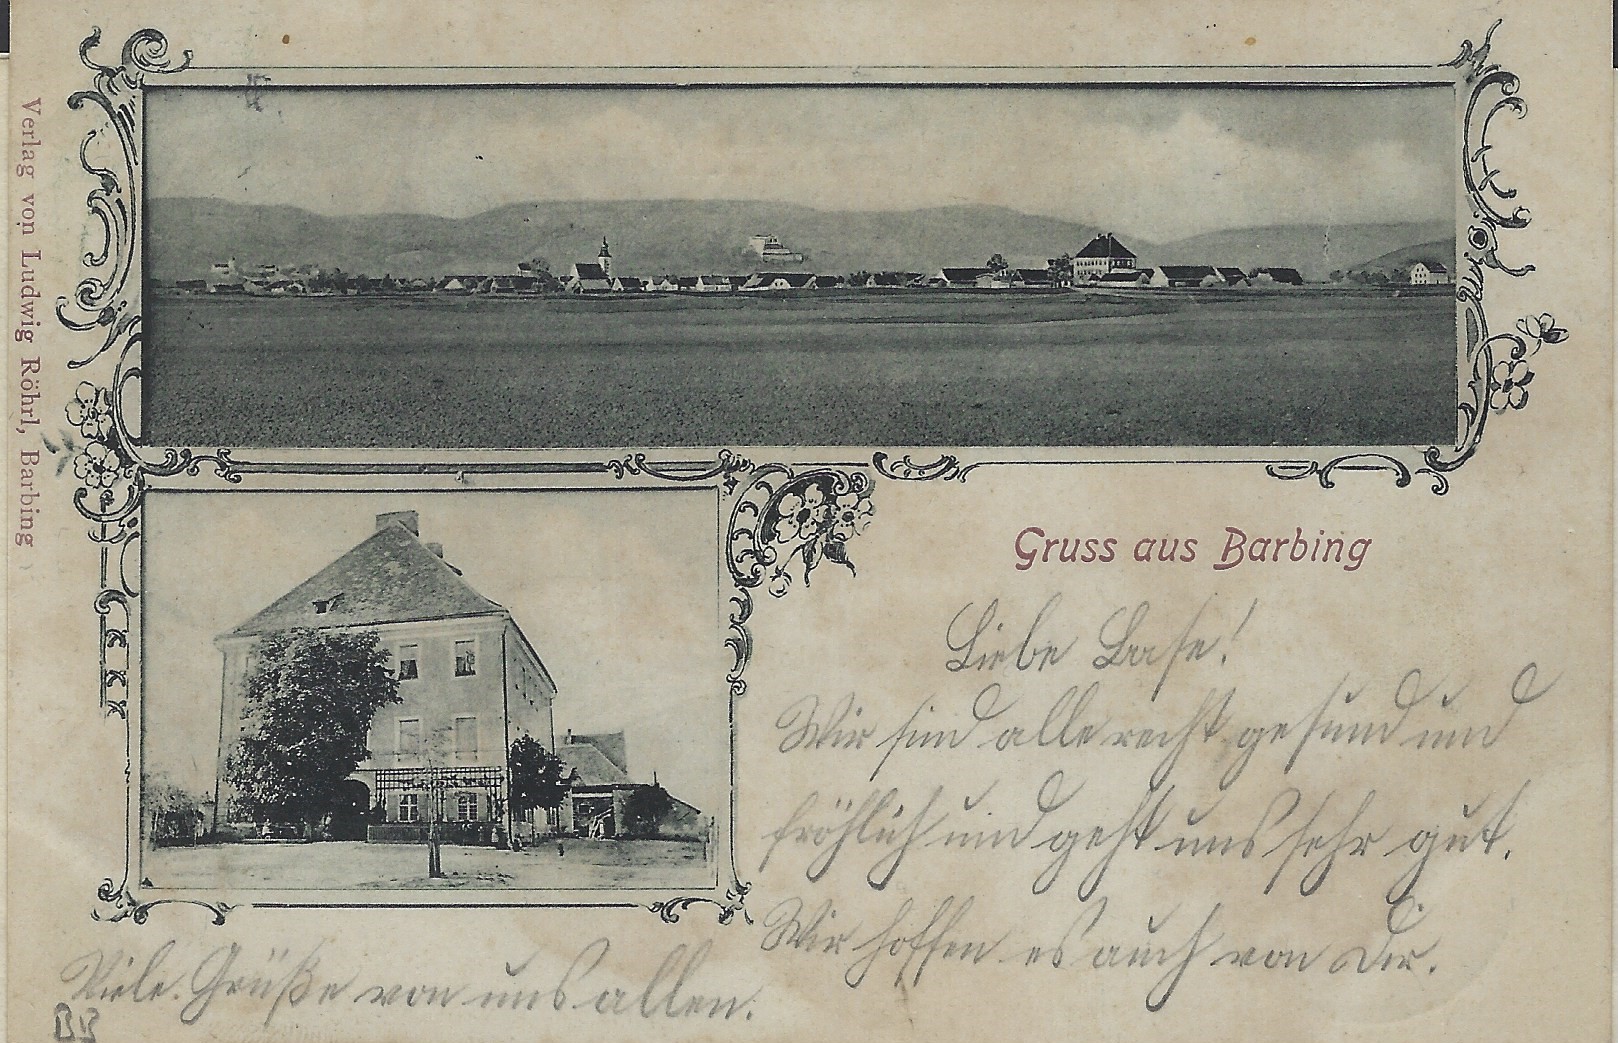 Verlag von Ludwig Röhrl, Barbing
Gruss aus Barbing
Liebe Base!
Wir sind alle recht gesund und
fröhlich und geht uns sehr gut.
Wir hoffen es auch von Dir.
Viele Grüße von uns allen.
BB